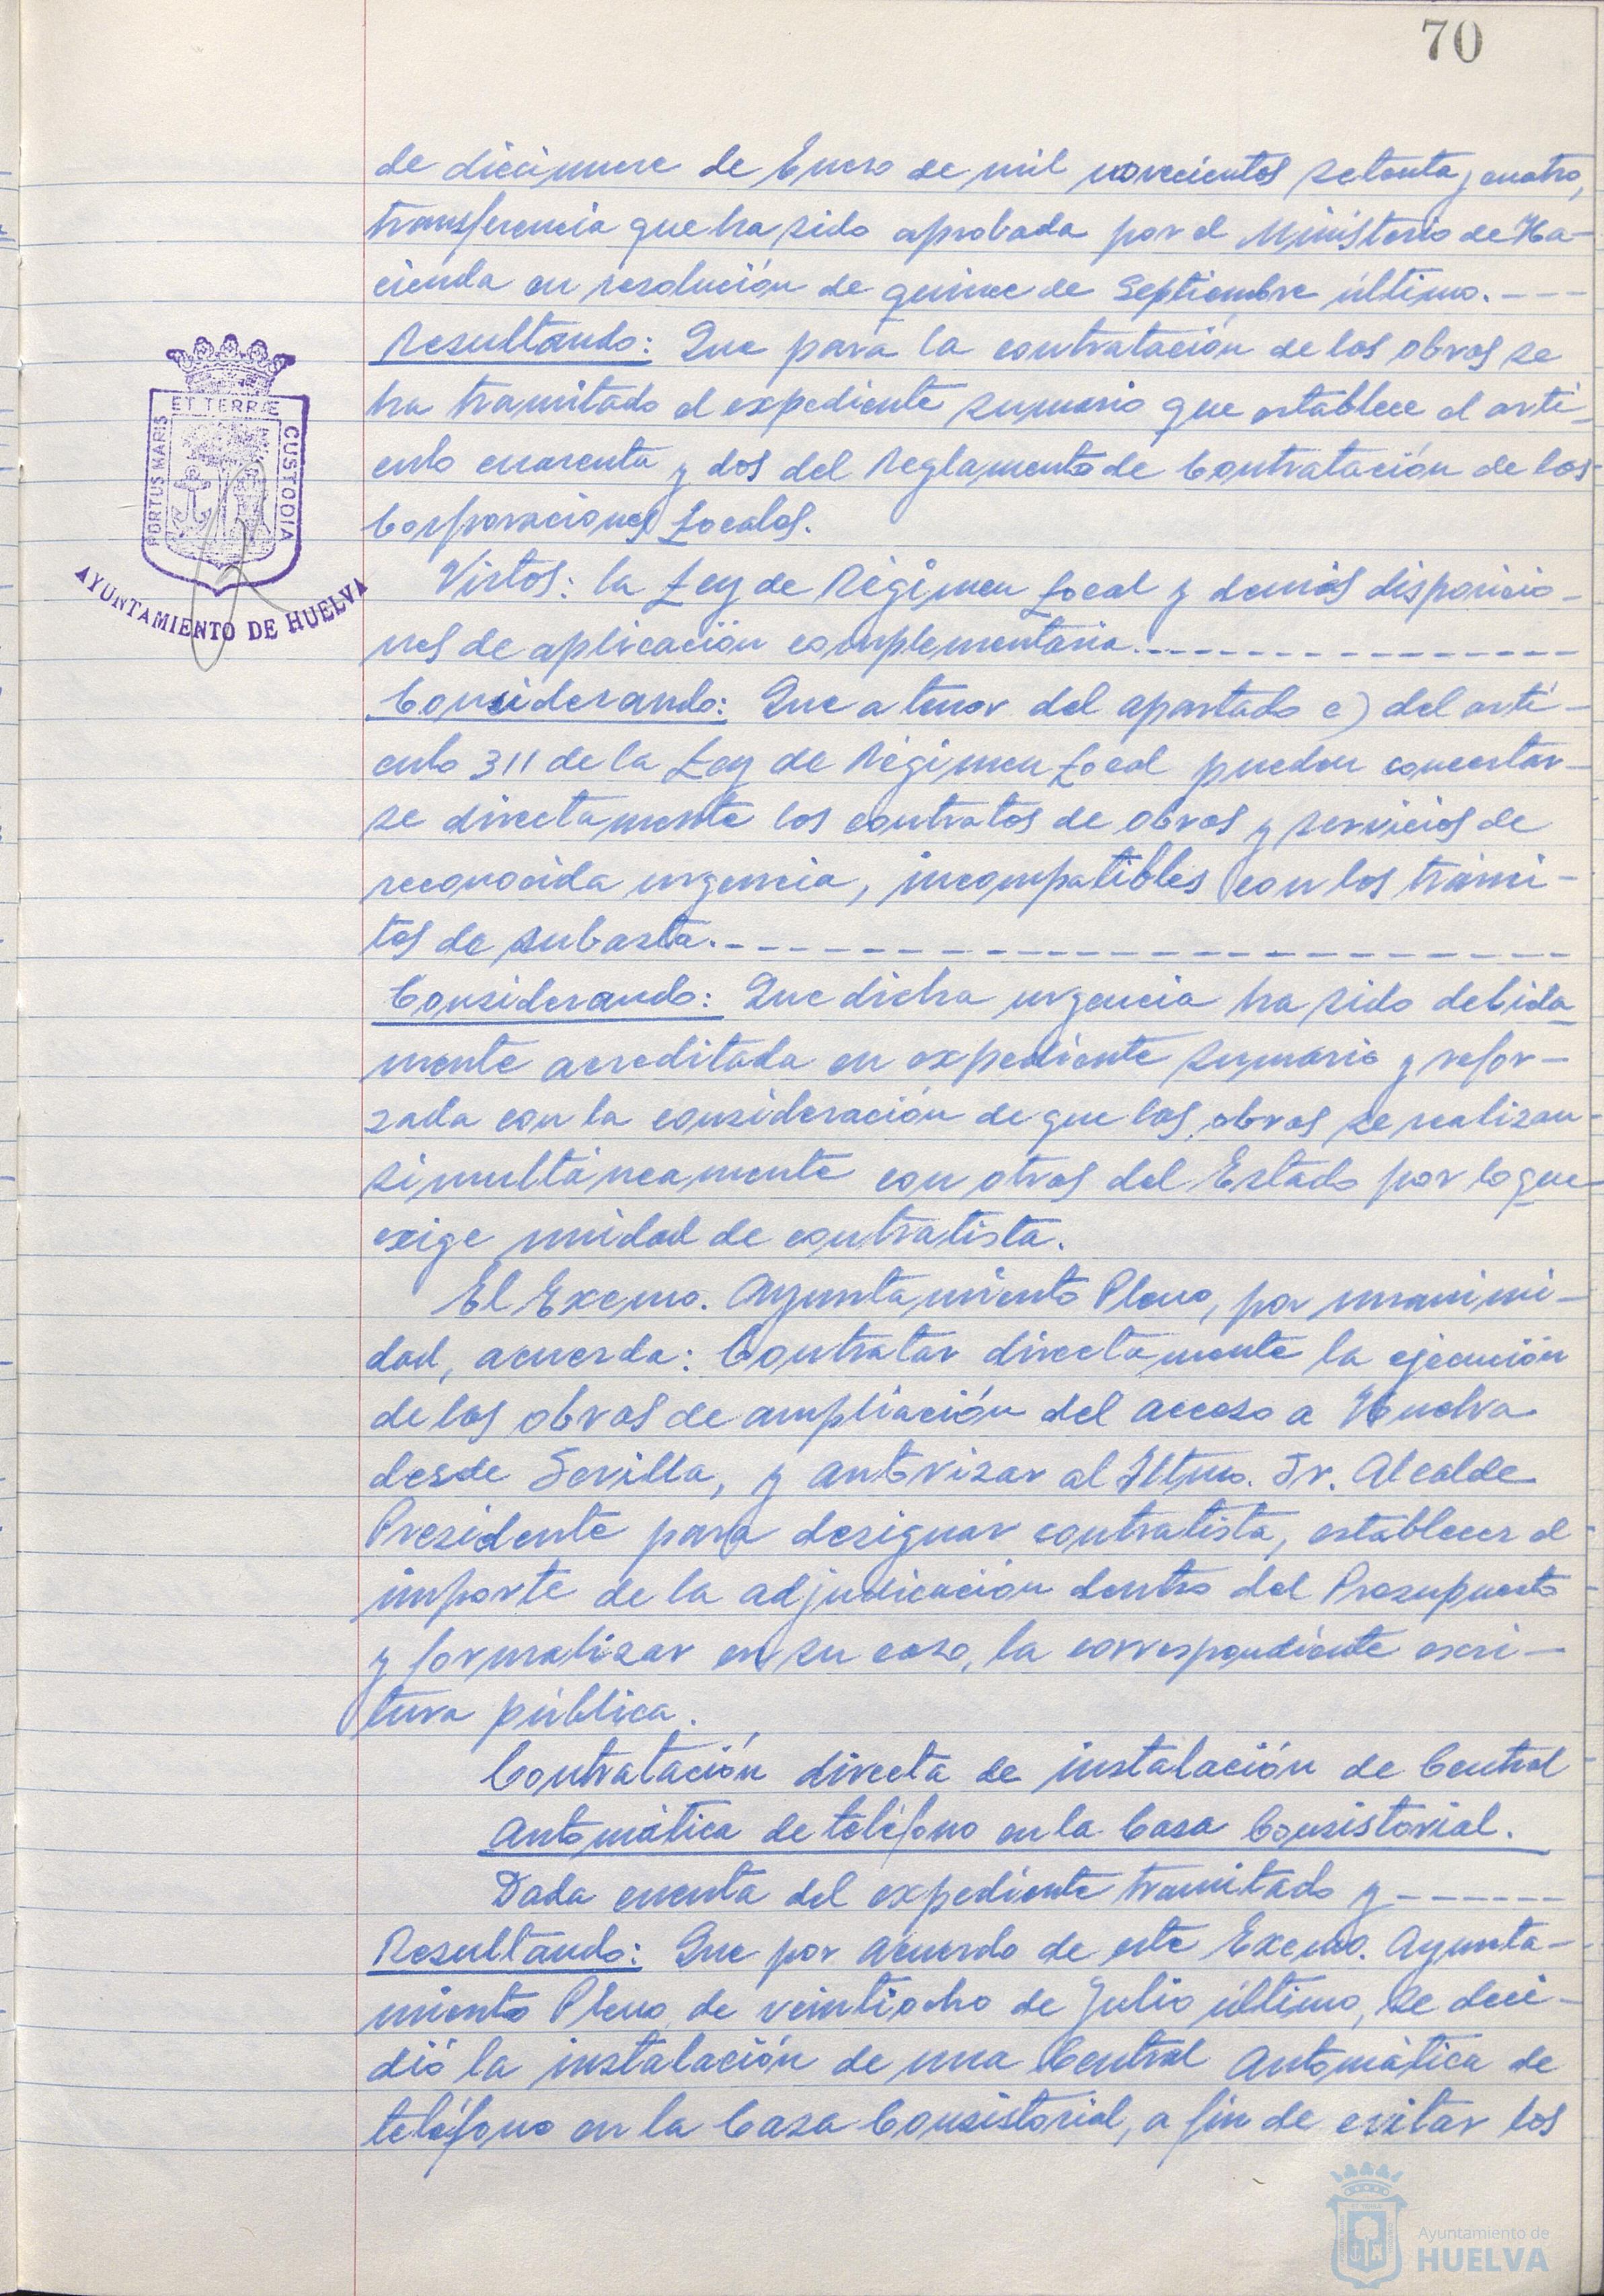 70
de diecinueve de Enero de mil novecientos setenta y cuatro,
transferencia que ha sido aprobada por el Ministerio de Ha-
cienda en resolución de quince de Septiembre último. ---
Resultando: Que para la contratación de las obras se
ha tramitado el expediente sumario que establece el artí-
culo cuarenta y dos del Reglamento de Contratación de las
Corporaciones Locales.
Vistos: la Ley de Régimen Local y demás disposicio-
nes de aplicación complementaria. ---------------
Considerando: Que a tenor del apartado c) del artí-
culo 311 de la Ley de Régimen Local pueden concertar-
se directamente los contratos de obras y servicios de
reconocida urgencia, incompatibles con los trámi-
tes de subasta. ---------------------
Considerando: Que dicha urgencia ha sido debida-
mente acreditada en expediente sumario y refor-
zada con la consideración de que las obras se realizan
simultáneamente con otras del Estado por lo que
exige unidad de contratista.
El Excmo. Ayuntamiento Pleno, por unanimi-
dad, acuerda: Contratar directamente la ejecución
de las obras de ampliación del acceso a Huelva
desde Sevilla, y autorizar al Iltmo. Sr. Alcalde
Presidente para designar contratista, establecer el
importe de la adjudicación dentro del Presupuesto
y formalizar en su caso, la correspondiente escri-
tura pública.
Contratación directa de instalación de Central
Automática de teléfono en la Casa Consistorial.
Dada cuenta del expediente tramitado y ------
Resultando: Que por acuerdo de este Excmo. Ayunta-
miento Pleno, de veintiocho de Julio último, se deci-
dió la instalación de una Central Automática de
teléfono en la Casa Consistorial, a fin de evitar los
PORTUS MARIS ET TERRÆ CUSTODIA
AYUNTAMIENTO DE HUELVA
Ayuntamiento de
HUELVA